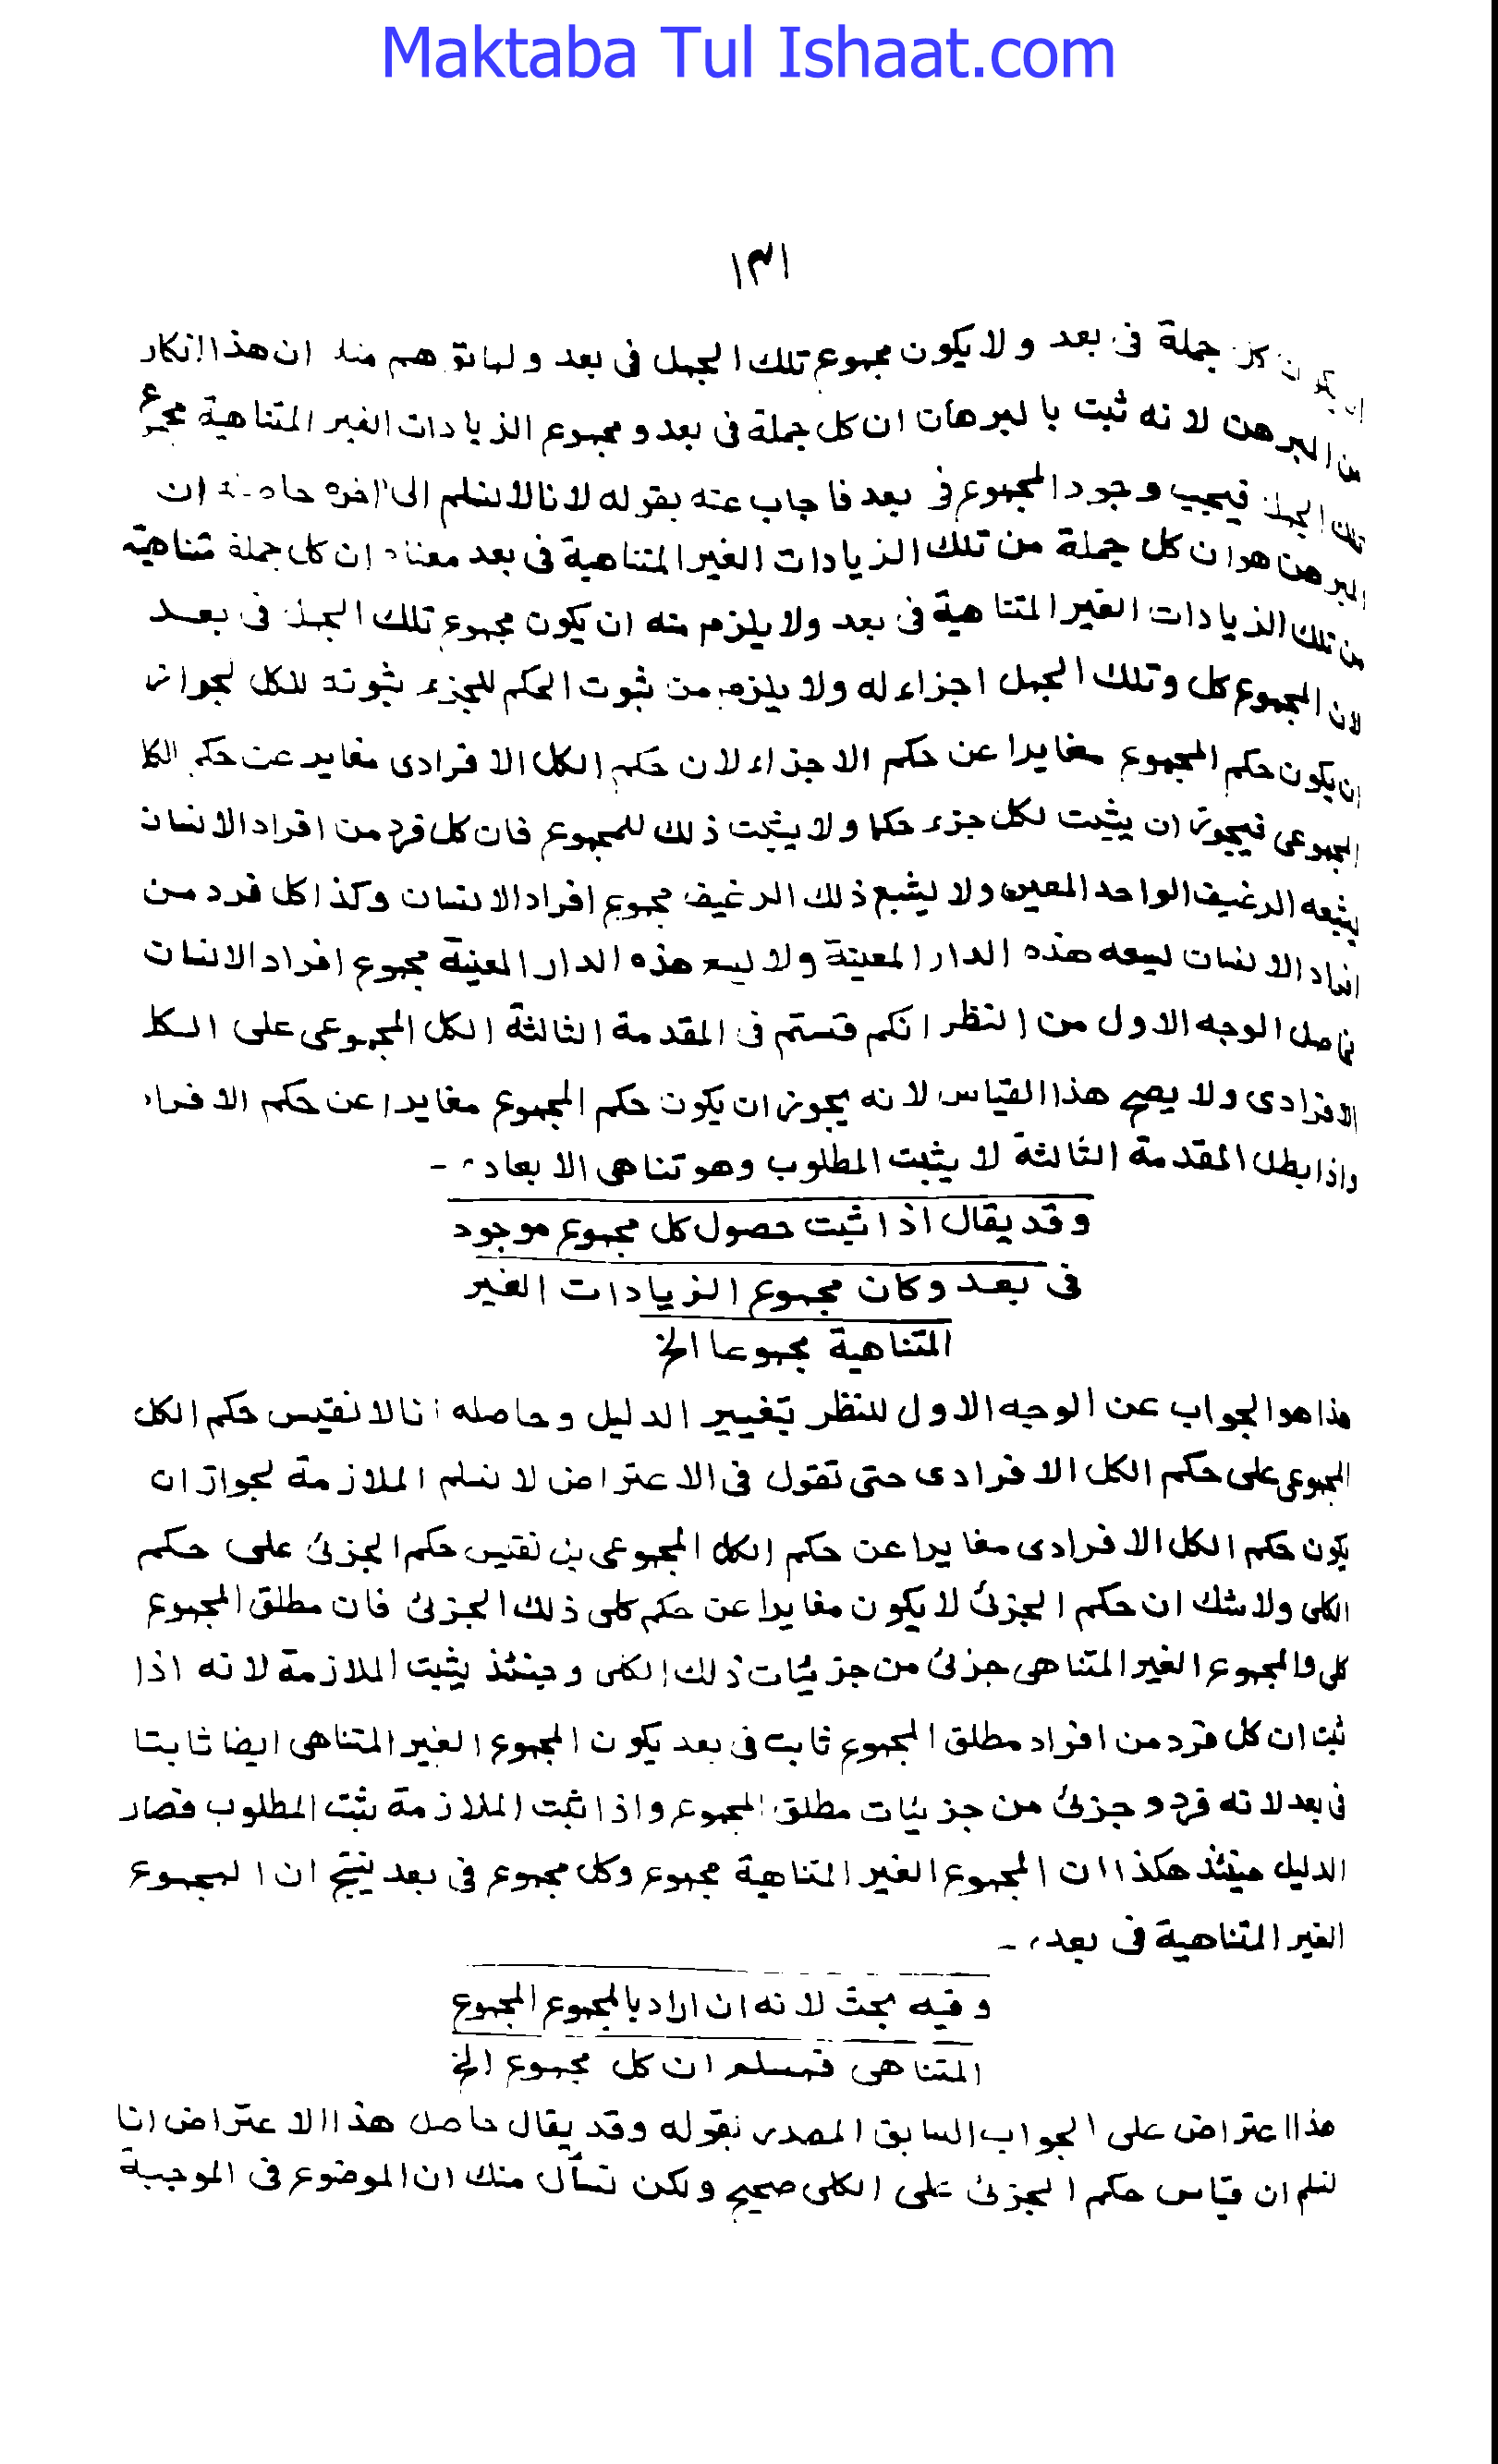 Maktaba Tul Ishaat.com
١٣١
كل جملة فى بعد ولا يكون مجموع تلك الجمل فى بعد ولما توهم منه ان هذا انكار
من المبرهن لانه ثبت بالبرهان ان كل جملة فى بعد ومجموع الزيادات الغير المتناهية مجموع
تلك الجملة فيجب وجود المجموع فى بعد فاجاب عنه بقوله لانا لا نسلم الى اخره حاصله ان
المبرهن هو ان كل جملة من تلك الزيادات الغير المتناهية فى بعد معناه ان كل جملة متناهية
من تلك الزيادات الغير المتناهية فى بعد ولا يلزم منه ان يكون مجموع تلك الجملة فى بعد
لان المجموع كل وتلك الجمل اجزاء له ولا يلزم من ثبوت الحكم للجزء ثبوته للكل لجواز
ان يكون حكم المجموع مغايرا عن حكم الاجزاء لان حكم الكل الافرادى مغاير عن حكم الكل
المجموعى فيجوز ان يثبت لكل جزء حكما ولا يثبت ذلك للمجموع فان كل فرد من افراد الانسان
يشبعه الرغيف الواحد المعين ولا يشبع ذلك الرغيف مجموع افراد الانسان وكذا كل فرد من
افراد الانسان ليسعه هذه الدار المعينة ولا ليسع هذه الدار المعنية مجموع افراد الانسان
فاصل الوجه الاول من النظر انكم قستم فى المقدمة الثالثة الكل المجموعى على الكل
الافرادى ولا يصح هذا القياس لانه يجوز ان يكون حكم المجموع مغايرا عن حكم الافراد
واذا بطل المقدمة الثالثة لا يثبت المطلوب وهو تناهى الابعاد، -
وقد يقال اذا ثبت حصول كل مجموع موجود
فى بعد وكان مجموع الزيادات الغير
المتناهية مجموعا الخ
هذا هو الجواب عن الوجه الاول للنظر بتغيير الدليل وحاصله انا لا نقيس حكم الكل
المجموعى على حكم الكل الافرادى حتى تقول فى الاعتراض لا نسلم الملازمة لجواز ان
يكون حكم الكل الافرادى مغايرا عن حكم الكل المجموعى بل نقيس حكم الجزئ على حكم
الكلى ولا شك ان حكم الجزئ لا يكون مغايرا عن حكم كلى ذلك الجزئ فان مطلق المجموع
كلى والمجموع الغير المتناهى جزئ من جزئيات ذلك الكلى وحينئذ يثبت الملازمة لانه اذا
ثبت ان كل فرد من افراد مطلق المجموع ثابت فى بعد يكون المجموع الغير المتناهى ايضا ثابتا
فى بعد لانه فرد وجزئ من جزئيات مطلق المجموع واذا ثبت الملازمة ثبت المطلوب فصار
الدليل حينئذ هكذا ان المجموع الغير المتناهية مجموع وكل مجموع فى بعد ينتج ان المجموع
الغير المتناهية فى بعد، -
وفيه بحث لانه ان اراد بالمجموع المجموع
المتناهى فمسلم ان كل مجموع الخ
هذا اعتراض على الجواب السابق المصدر بقوله وقد يقال حاصل هذا الاعتراض انا
لنسلم ان قياس حكم الجزئ على الكلى صحيح ولكن نسأل منك ان الموضوع فى الموجبة